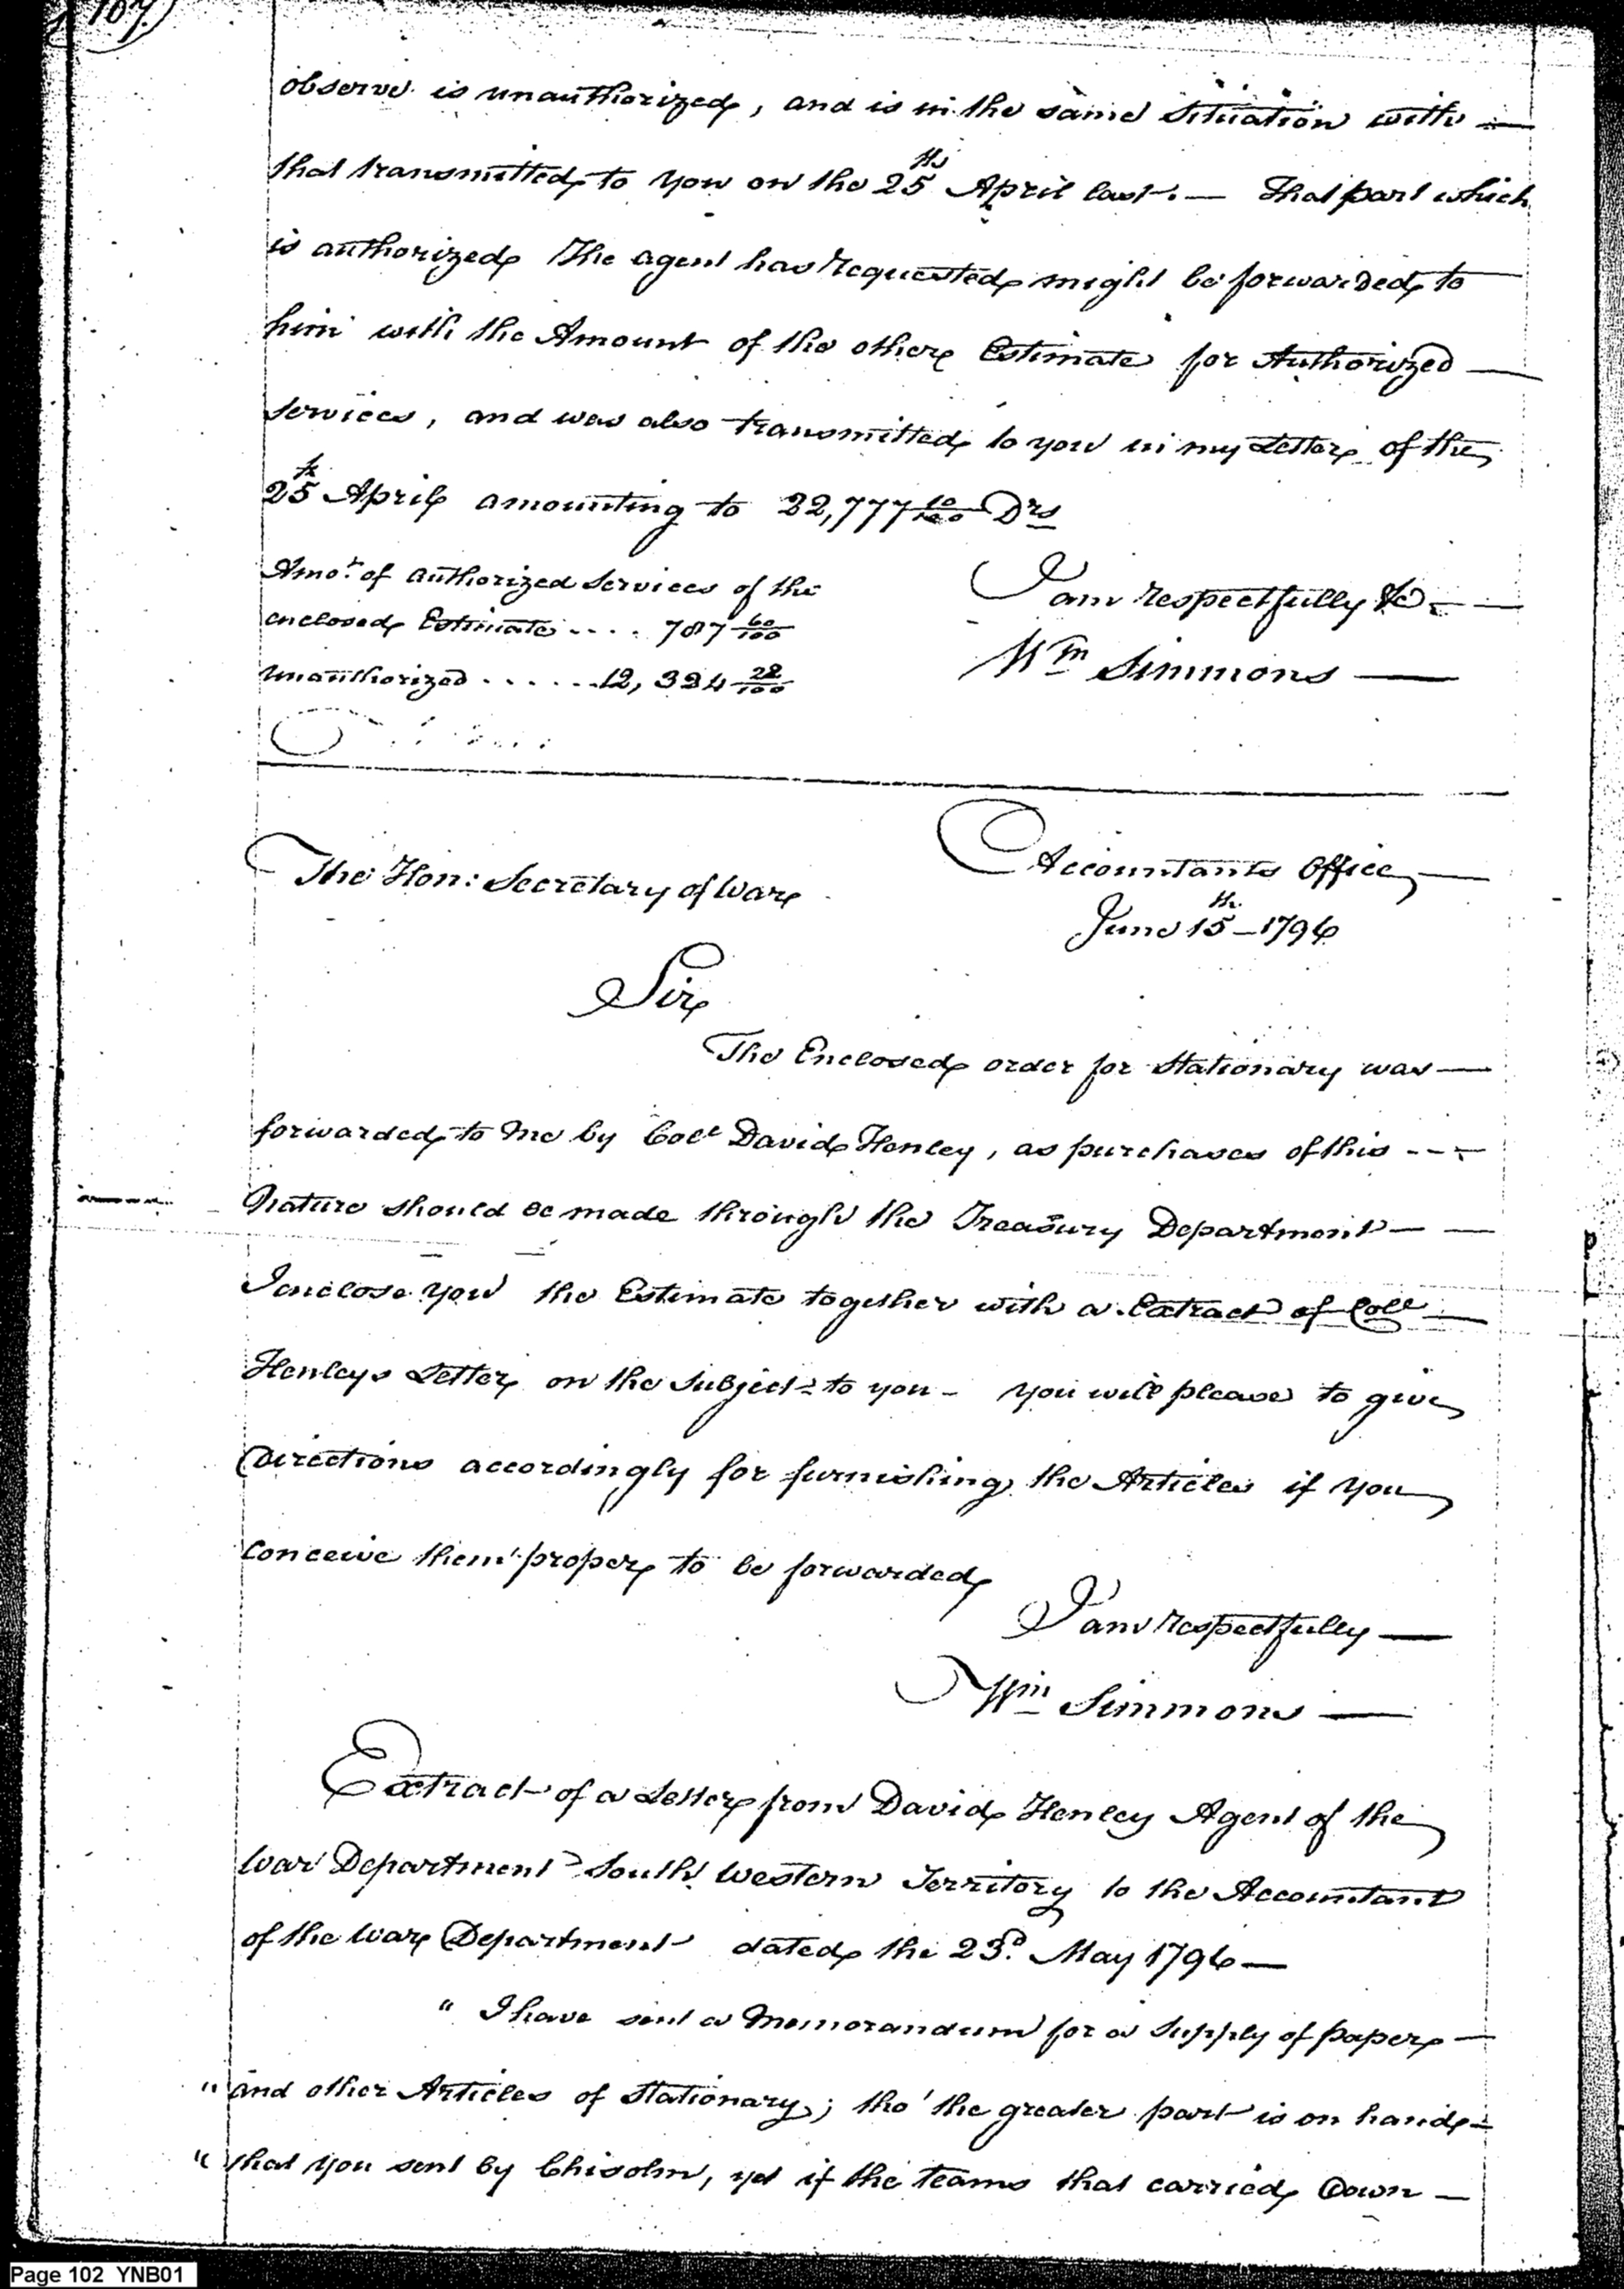 107.
observe is unauthorized, and is in the same situation with —
that transmitted to you on the 25th April last. — That part which
is authorized The agent has requested might be forwarded to
him with the Amount of the other Estimate for Authorized —
services, and was also transmitted to you in my Letter of the
25th April amounting to 22,777 10/100 Drs
Amot. of authorized Services of the
enclosed Estimate .... 787 60/100
unauthorized ...... 12,324 22/100
I am respectfully &c. —
Wm Simmons —
The Hon: Secretary of War
Accountants Office —
June 15th. – 1796
Sir
The Enclosed order for Stationary was —
forwarded to me by Coll David Henley, as purchases of this ---
Nature should be made through the Treasury Department — —
I enclose you the Estimate together with a Extract of Coll —
Henleys Letter on the subject to you – you will please to give
Directions accordingly for furnishing the Articles if you
conceive them proper to be forwarded
I am respectfully —
Wm Simmons —
Extract of a Letter from David Henley Agent of the
War Department South Western Territory to the Accountant
of the War Department dated the 23d. May 1796 —
" I have sent a Memorandum for a supply of paper —
" and other Articles of Stationary; tho' the greater part is on hand –
" that you sent by Chisolm, yet if the teams that carried Down —
Page 102 YNB01